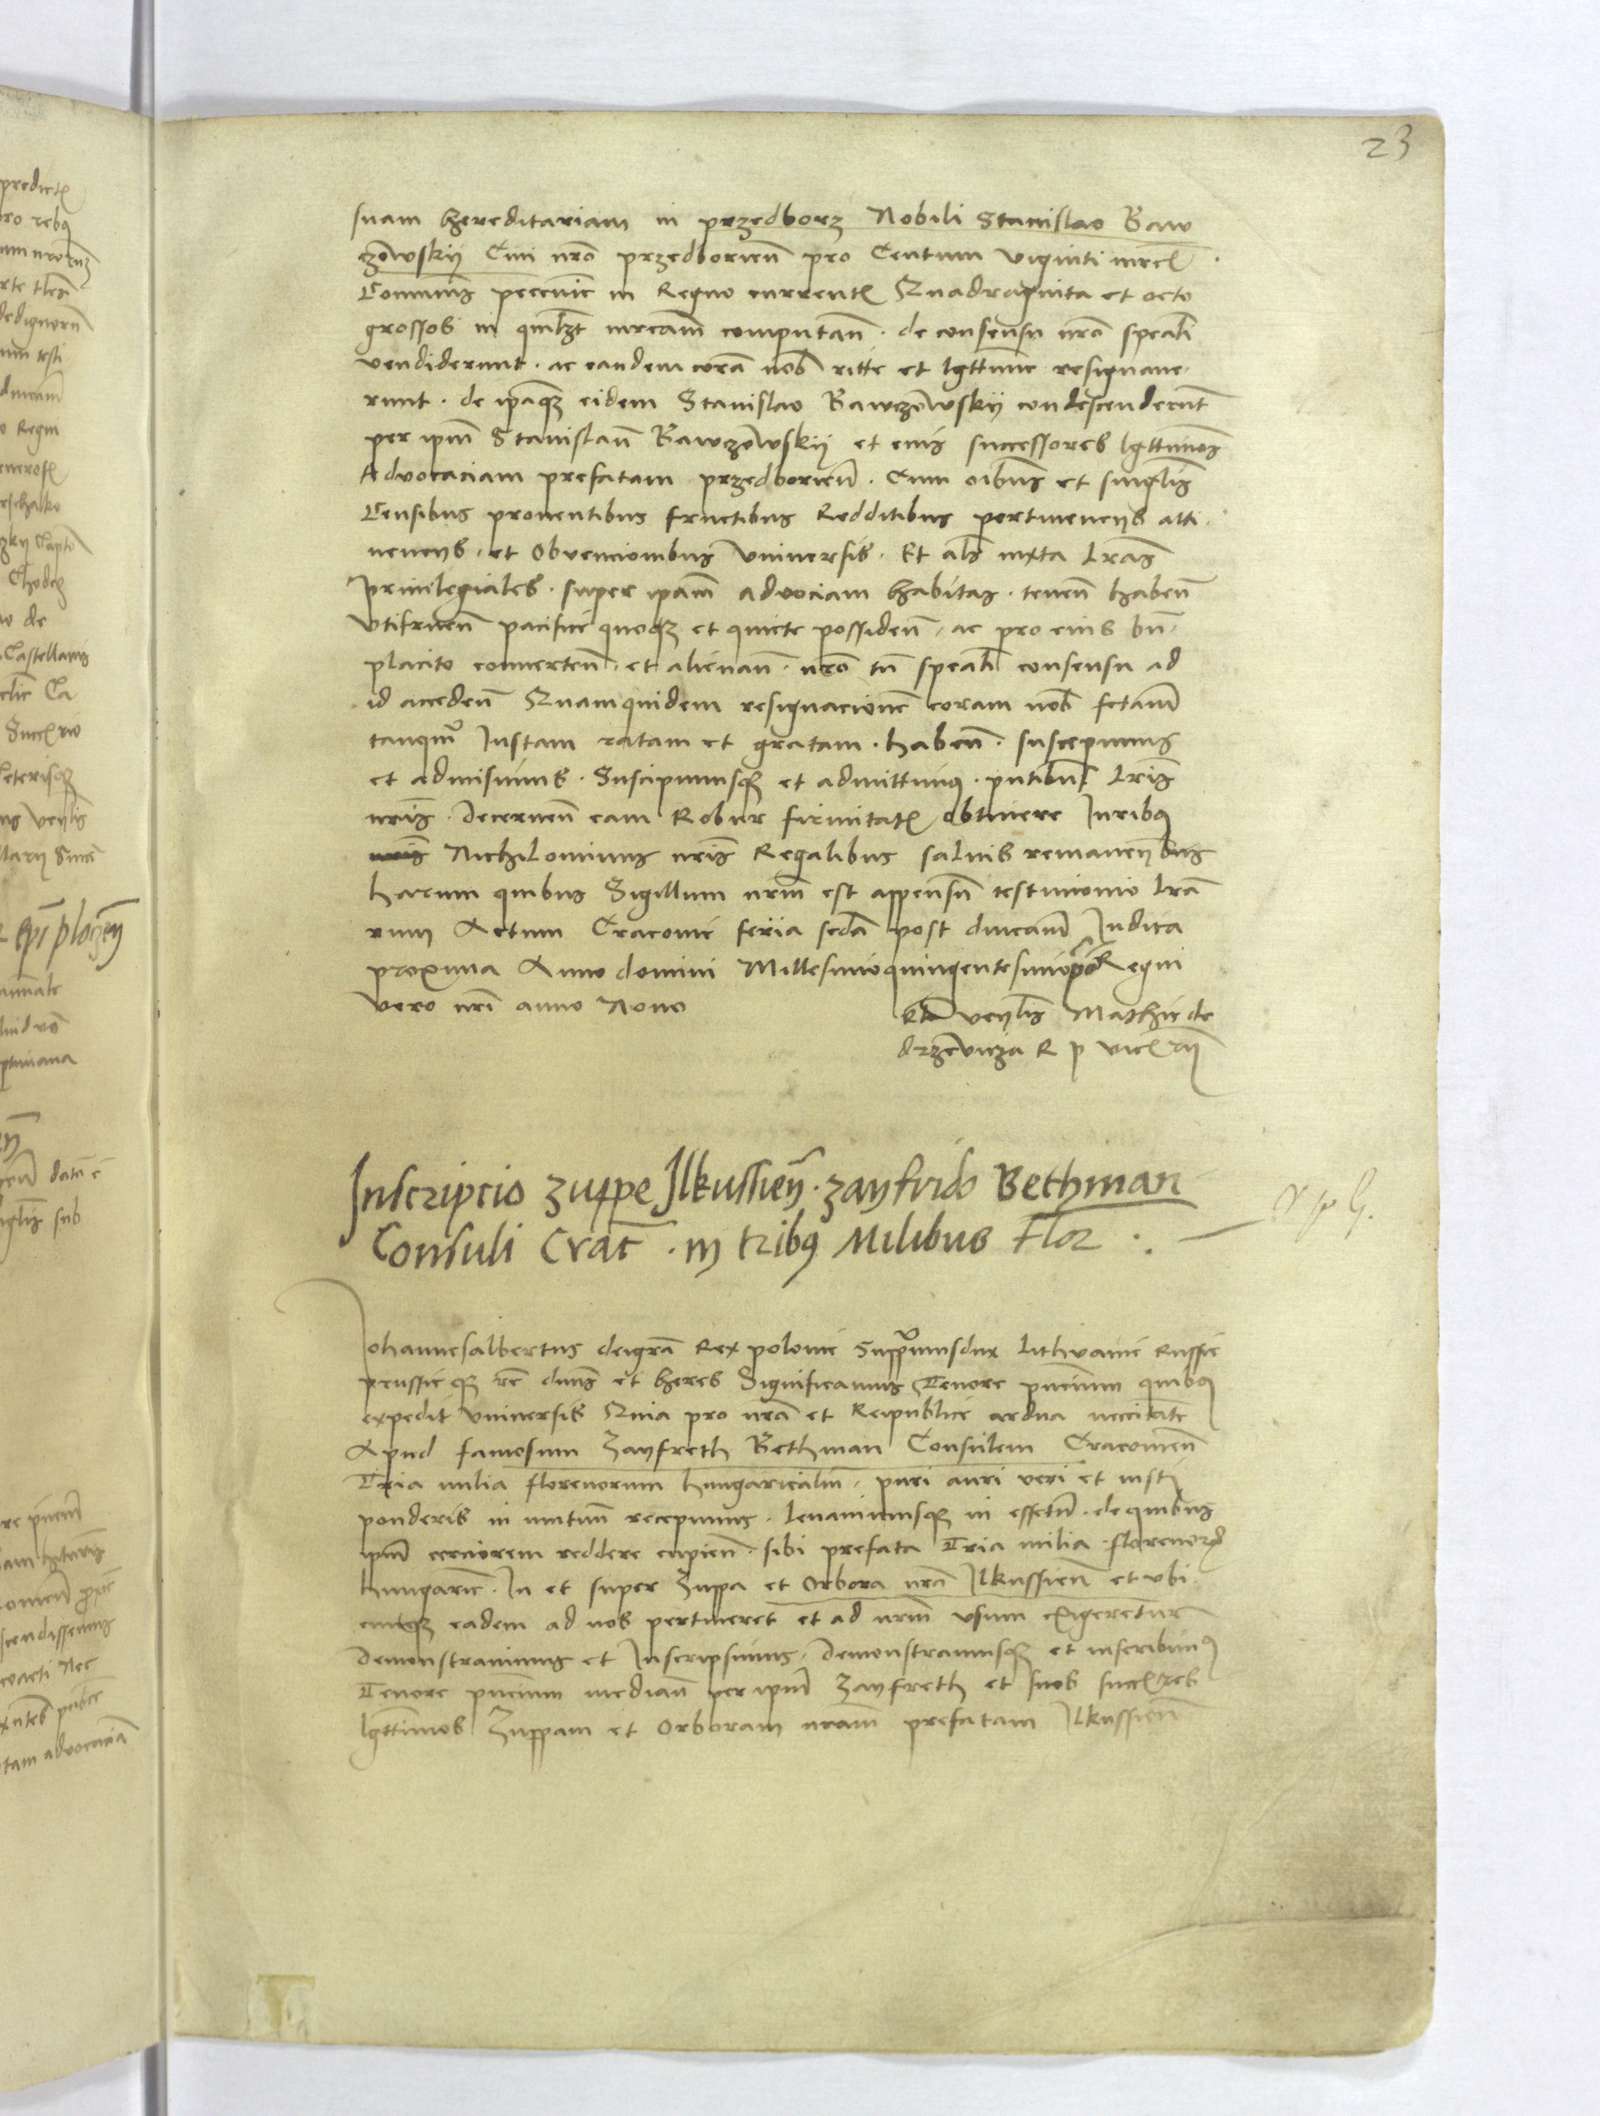 23
suam hereditariam in przedborz Nobili Stanislao Baw
czowskij Civi nro przedborien pro Centum viginti mrcis
Communis peccunie in Regno currentis Quadraginta et octo
grossos in qmlbzt mrcam computan. de consensu nro speali
vendiderunt. ac eandem cora nob ritte et lgttime resignave.
runt. de ipaqz eidem Stanislao Bawczowskij condescenderunt
per ipm Stanislau Bawczowskij et eius successores lgttimos
Advocaciam prefatam przedborien. Cum oibus et singlis
Censibus proventibus fructibus Redditibus pertinencys atti.
nencys. et Obvencionibus Vniversis. Et als iuxta Lras
privilegiales. super ipam advociam habitas. tenen haben
vtifruen pacifice quoqz et quiete possiden. ac pro eius bn.
placito converten. et alienan. nro tn speali consensu ad
id acceden Quamquidem resignacione coram nob fctam
tanqm Iustam ratam et gratam. haben. suscepimus
et admisimus. Suscipimusqz et admittimus. pntibus Lris
nris. Decernen eam Robur firmitatis obtinere Iuribus
Nichilominus nris Regalibus salvis remanenbus
harum quibus Sigillum nrm est appensu testimonio lra
rum Actum Cracovie feria scda post dnicam Iudica
proxima Anno domini Millesimoquingentesimopo Regni
vero nri anno Nono
Rlo venlis Mathie de
drzewicza R p vicecan
Inscripcio zuppe Ilkussien. zayfrido Bethman
Consuli Crac. in tribus Milibus Flor.
Iohannesalbertus deigra Rex polonie Supprmusdux Lithvanie Russie
prussieqz etc dnus et heres Significamus Tenore pncium quibus
expedit vniversis Quia pro nra et Reipublice ardua neccitate
Apud famosum Zayfreth Bethman Consulem Cracovien
Tria milia florenorum hungaricaliu. puri auri veri et iusti
ponderis in mutuu recepimus. levavimusqz in effctu. de quibus
ipm cerciorem reddere cupien. sibi prefata Tria milia florenorum
hungaric. In et super Zuppa et Orbora nra Ilkussien et vbi
cuqz eadem ad nos pertineret et ad nrm vsum exigeretur
Demonstravimus et Inscripsimus. Demonstramusqz et inscribimus
Tenore pncium median per ipm Zayfreth et suos successores
lgttimos Zuppam et Orboram nram prefatam Ilkussien